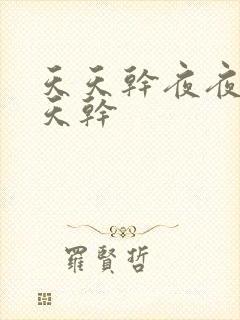 天天幹夜夜
天幹
羅賢哲